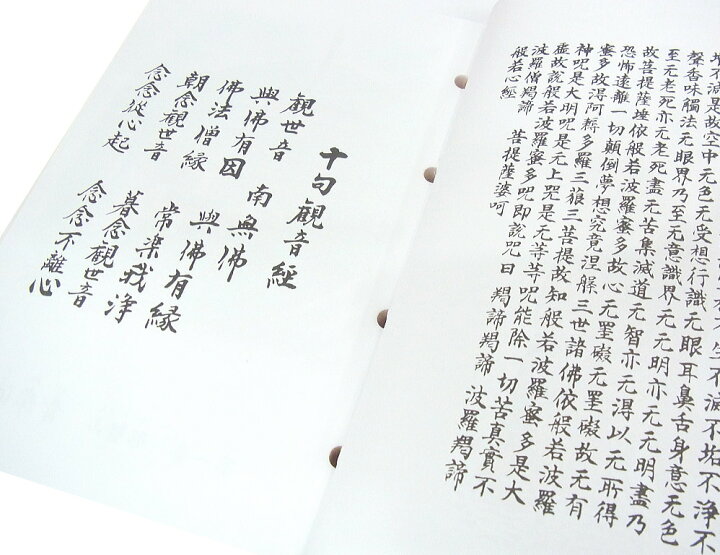 生不滅不垢不浄不
増不減是故空中无色无受想行識无眼耳鼻舌身意无色
聲香味觸法无眼界乃至无意識界无无明亦无无明盡乃
至无老死亦无老死盡无苦集滅道无智亦无得以无所得
故菩提薩埵依般若波羅蜜多故心无罣礙无罣礙故无有
恐怖遠離一切顛倒夢想究竟涅槃三世諸佛依般若波羅
蜜多故得阿耨多羅三藐三菩提故知般若波羅蜜多是大
神呪是大明呪是无上呪是无等等呪能除一切苦真實不
虚故説般若波羅蜜多呪即説呪曰 羯諦羯諦 波羅羯諦
波羅僧羯諦 菩提薩婆呵
般若心經
十句觀音經
觀世音 南無佛
與佛有因 與佛有縁
佛法僧縁 常楽我浄
朝念觀世音 暮念觀世音
念念從心起 念念不離心